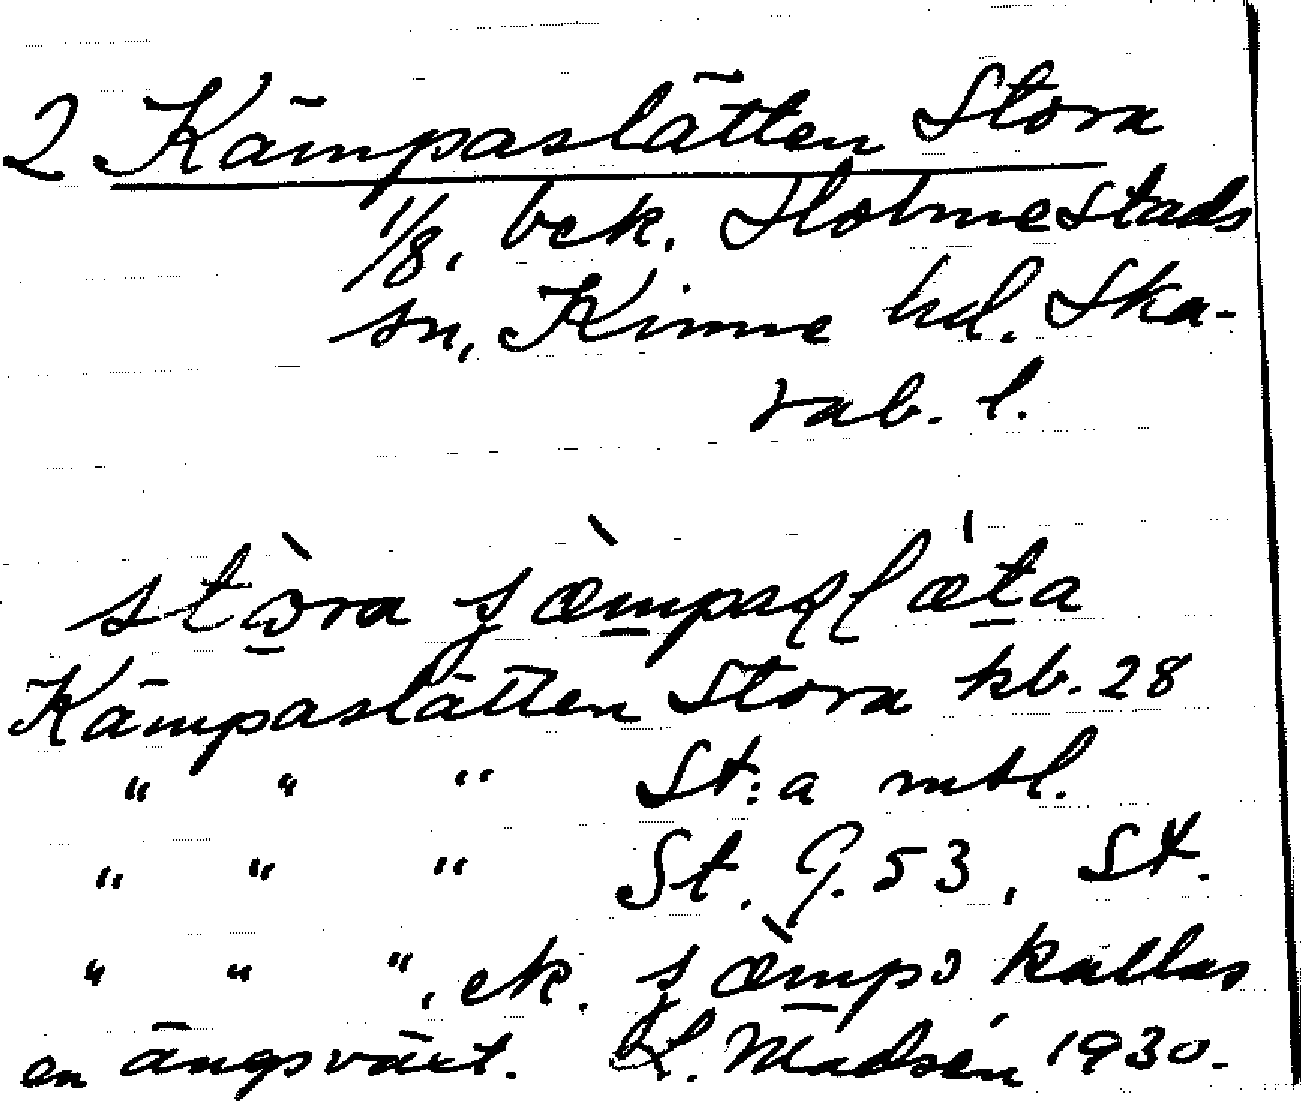 2 Kämpaslätten Stora
1/8, bek. Holmestads
sn, Kinne hd. Ska-
rab. l.
stòra ʂæ̀mpasɭæ'ta
Kämpaslätten Stora kb. 28
" " " St:a mtl.
" " " St. G. 53, St.
" " ", ek. ʂæ̀mpɔ kallas
en ängsväxt. L. Madsén 1930.